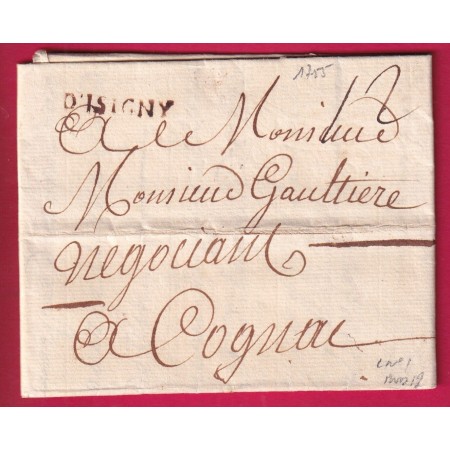 1755
D'ISIGNY
A Monsieur
Monsieur Gaultiere
negociant
a Cognac